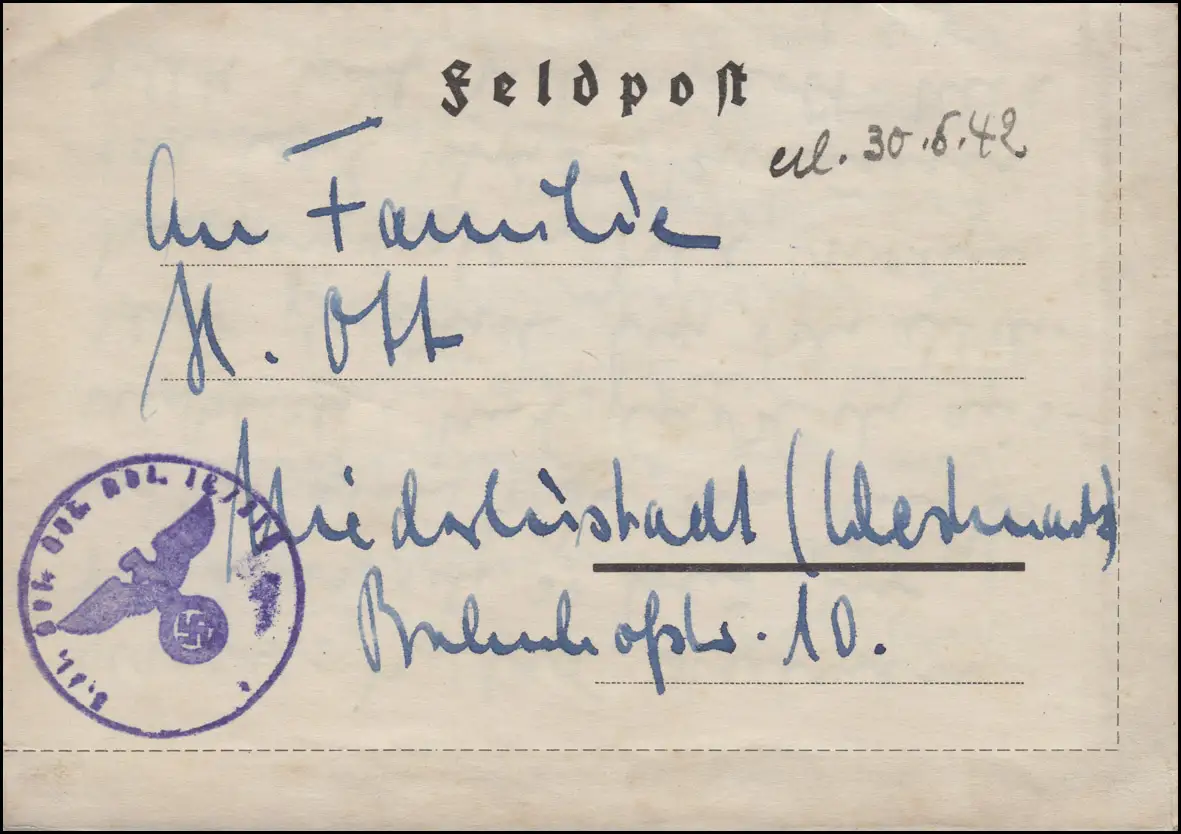 Feldpost
erl. 30.6.42
An Familie
H. Ott
Niederlustadt (Westmark)
Bahnhofstr. 10.